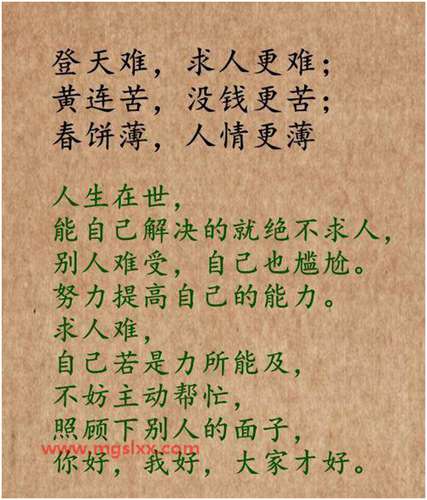 登天难，求人更难；
黄连苦，没钱更苦；
春饼薄，人情更薄
人生在世，
能自己解决的就绝不求人，
别人难受，自己也尴尬。
努力提高自己的能力。
求人难，
自己若是力所能及，
不妨主动帮忙，
照顾下别人的面子，
www.mgslxx.com
你好，我好，大家才好。